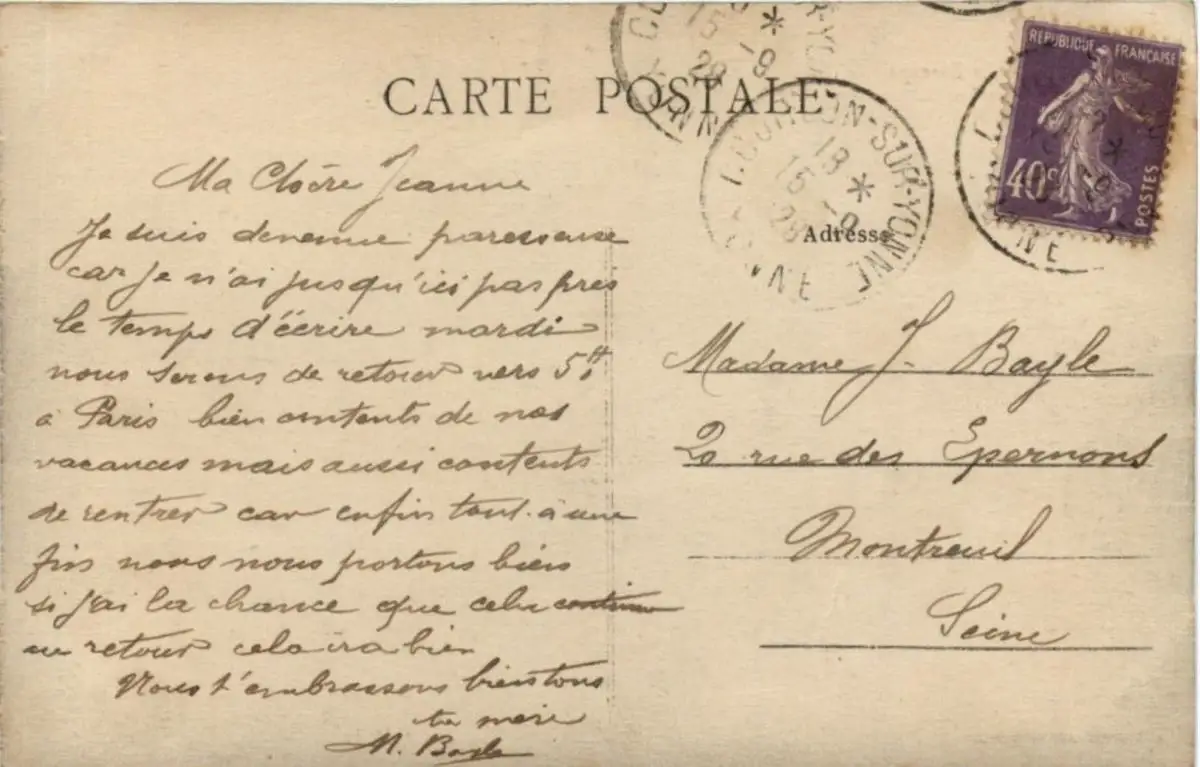 CARTE POSTALE
RÉPUBLIQUE FRANÇAISE
40c
POSTES
COURLON-SUR-YONNE
18 *
15 -9
28
YONNE
Adresse
Ma Chère Jeanne
Je suis devenue paresseuse
car je n'ai jusqu'ici pas pris
le temps d'écrire mardi
nous serons de retour vers 5H
à Paris bien contents de nos
vacances mais aussi contents
de rentrer car enfin tout a une
fin nous nous portons bien
si j'ai la chance que cela continue
au retour cela ira bien
Nous t'embrassons bien tous
ta mère
M. Bayle
Madame J. Bayle
20 rue des Epernons
Montreuil
Seine